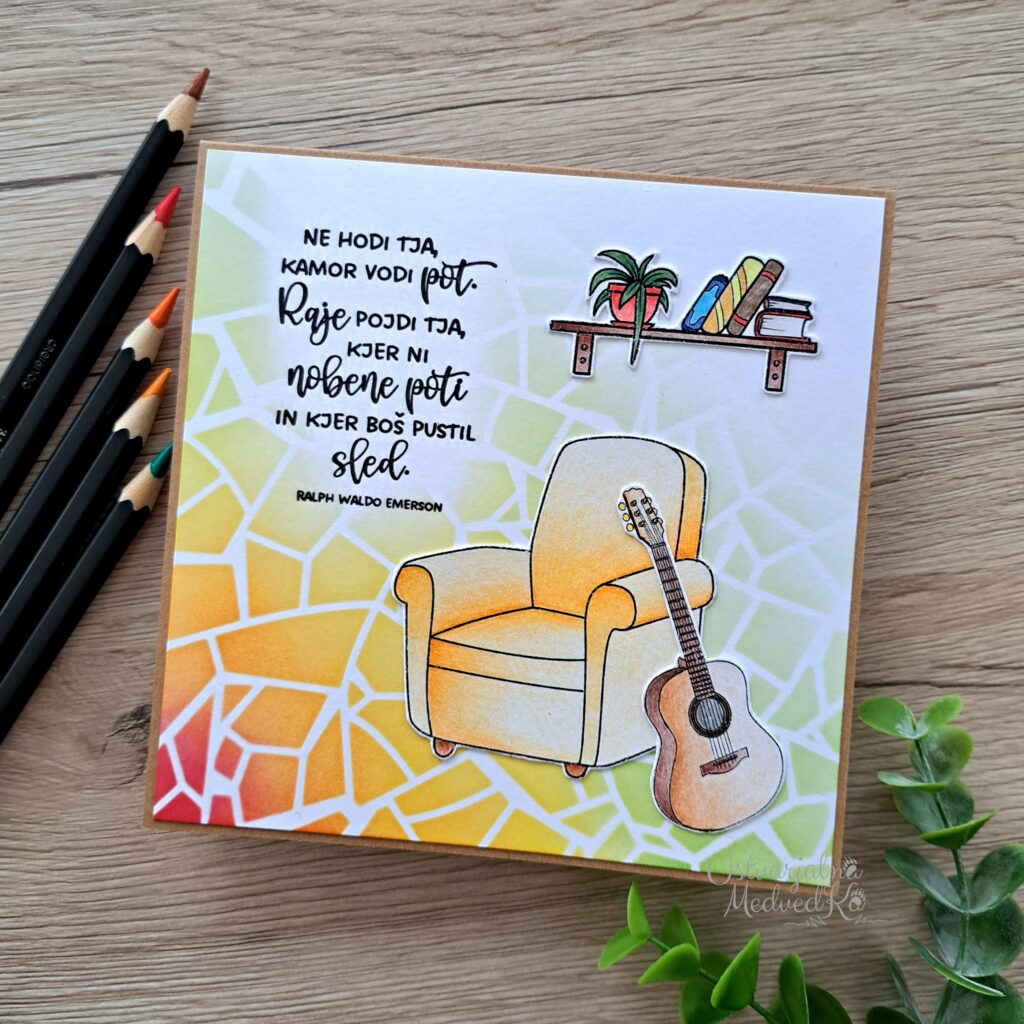 NE HODI TJA,
KAMOR VODI pot.
Raje POJDI TJA,
KJER NI
nobene poti
IN KJER BOŠ PUSTIL
sled.
RALPH WALDO EMERSON
Ustvarjalna
MedvedKa